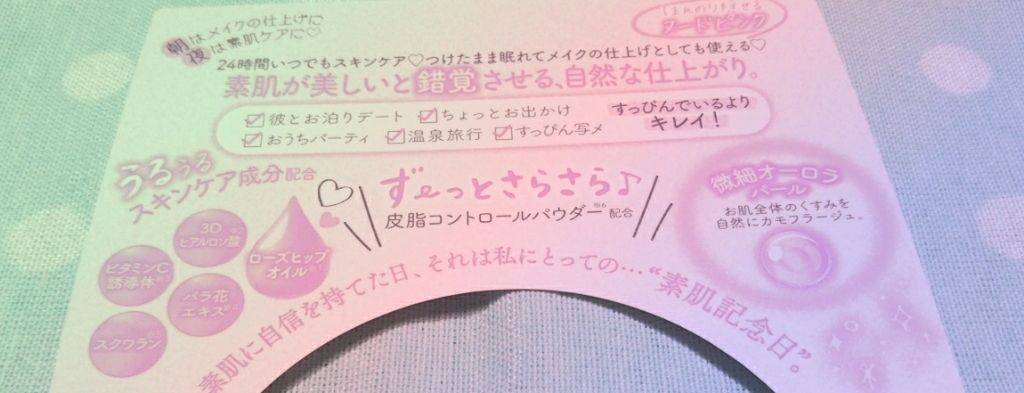 朝はメイクの仕上げに
夜は素肌ケアに♡
ヌードピンク
24時間いつでもスキンケア♡つけたまま眠れてメイクの仕上げとしても使える♡
素肌が美しいと錯覚させる、自然な仕上がり。
☑彼とお泊りデート ☑ちょっとお出かけ
☑おうちパーティ ☑温泉旅行 ☑すっぴん写メ
すっぴんでいるより
キレイ!
うるうる
スキンケア成分配合
3D
ヒアルロン酸
ビタミンC
誘導体
バラ花
エキス
スクワラン
ローズヒップ
オイル
ずーっとさらさら♪
皮脂コントロールパウダー※6配合
微細オーロラ
パール
お肌全体のくすみを
自然にカモフラージュ。
素肌に自信を持てた日、それは私にとっての…“素肌記念日”。